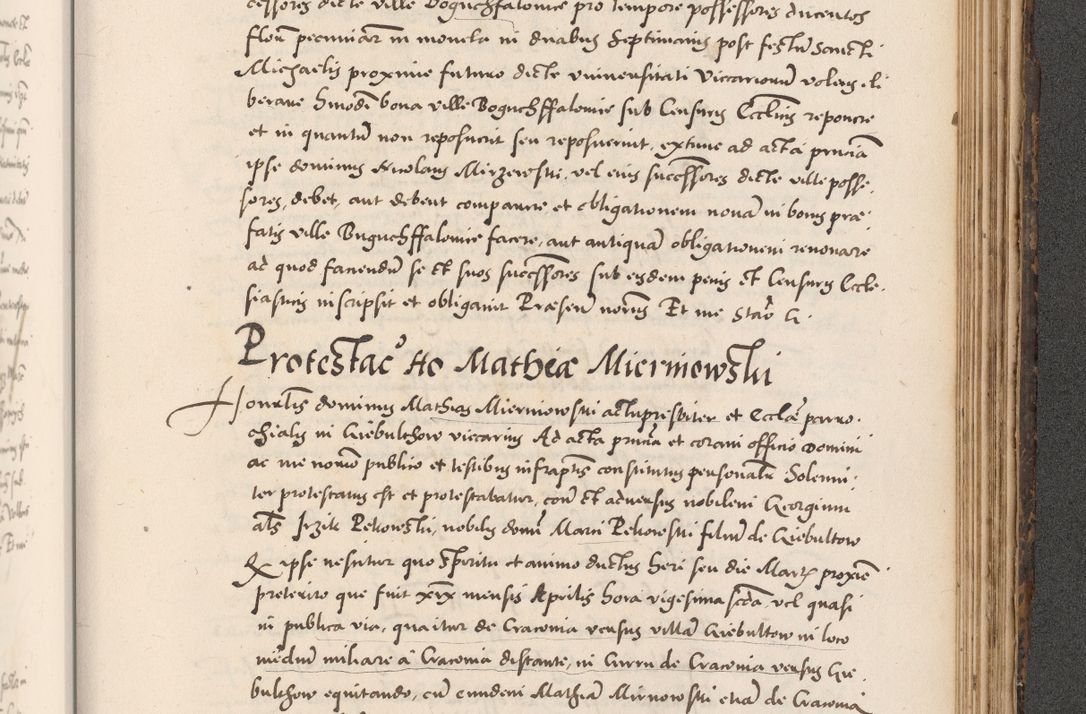 cessores dicte ville Boguchffalowice pro tempore possessores ducentos
floñ pecuniaȓ in moneta in duabus Septimanis post festũ Sancti
Michaelis proxime futuro dicte vniuersitati Viccariorũ volens eli
berare hmodi bona ville Boguchffalowice sub Censuris Ecclicis reponere
et in quantũ non reposuerit seu reposuerint, extunc ad acta pñcia
ipse dominus Nicolaus Mirzewski, vel eius succssores dicte ville posse,
sores, debet, aut debent comparere et obligationem nouã in bonis præ
fatis ville Buguchffalowice facere, aut antiquã obligationem renouare
ad quod faciendũ se et suos succssores sub eisdem penis et Censuris Eccle,
siasticis inscripsit et obligauit Præsen
Protestac̃ Ho Mathiæ Mierniowski
Honrabilis dominus Mathias Mierniowski actupresbiter et Ecclæ parro,
chialis in Giebulthow viccarius Ad acta pñcia et coram officio Domini
ac me notrio publico et testibus infraptis constitutus personalr Solenni,
ter protestatus est et protestabatur, conr et aduersus nobilem Georgium
als Jrzik Pekowski, nobilis domi Marci Pekowski filiũ de Giebultow
Qr ipse nescitur quo Spiritu et animo ductus heri seu die Martis proxie
preterito que fuit xxix mensis Aprilis hora vigesima scda, vel quasi
in publica via, qua itur de Cracouia versus villã Giebultow in loco
mediũ miliare a Cracouia distante, in Curru de Cracouia versus Gie,
bulthow equitando, cũ eundem Mathiã Mirnowski etiã de Cracouia